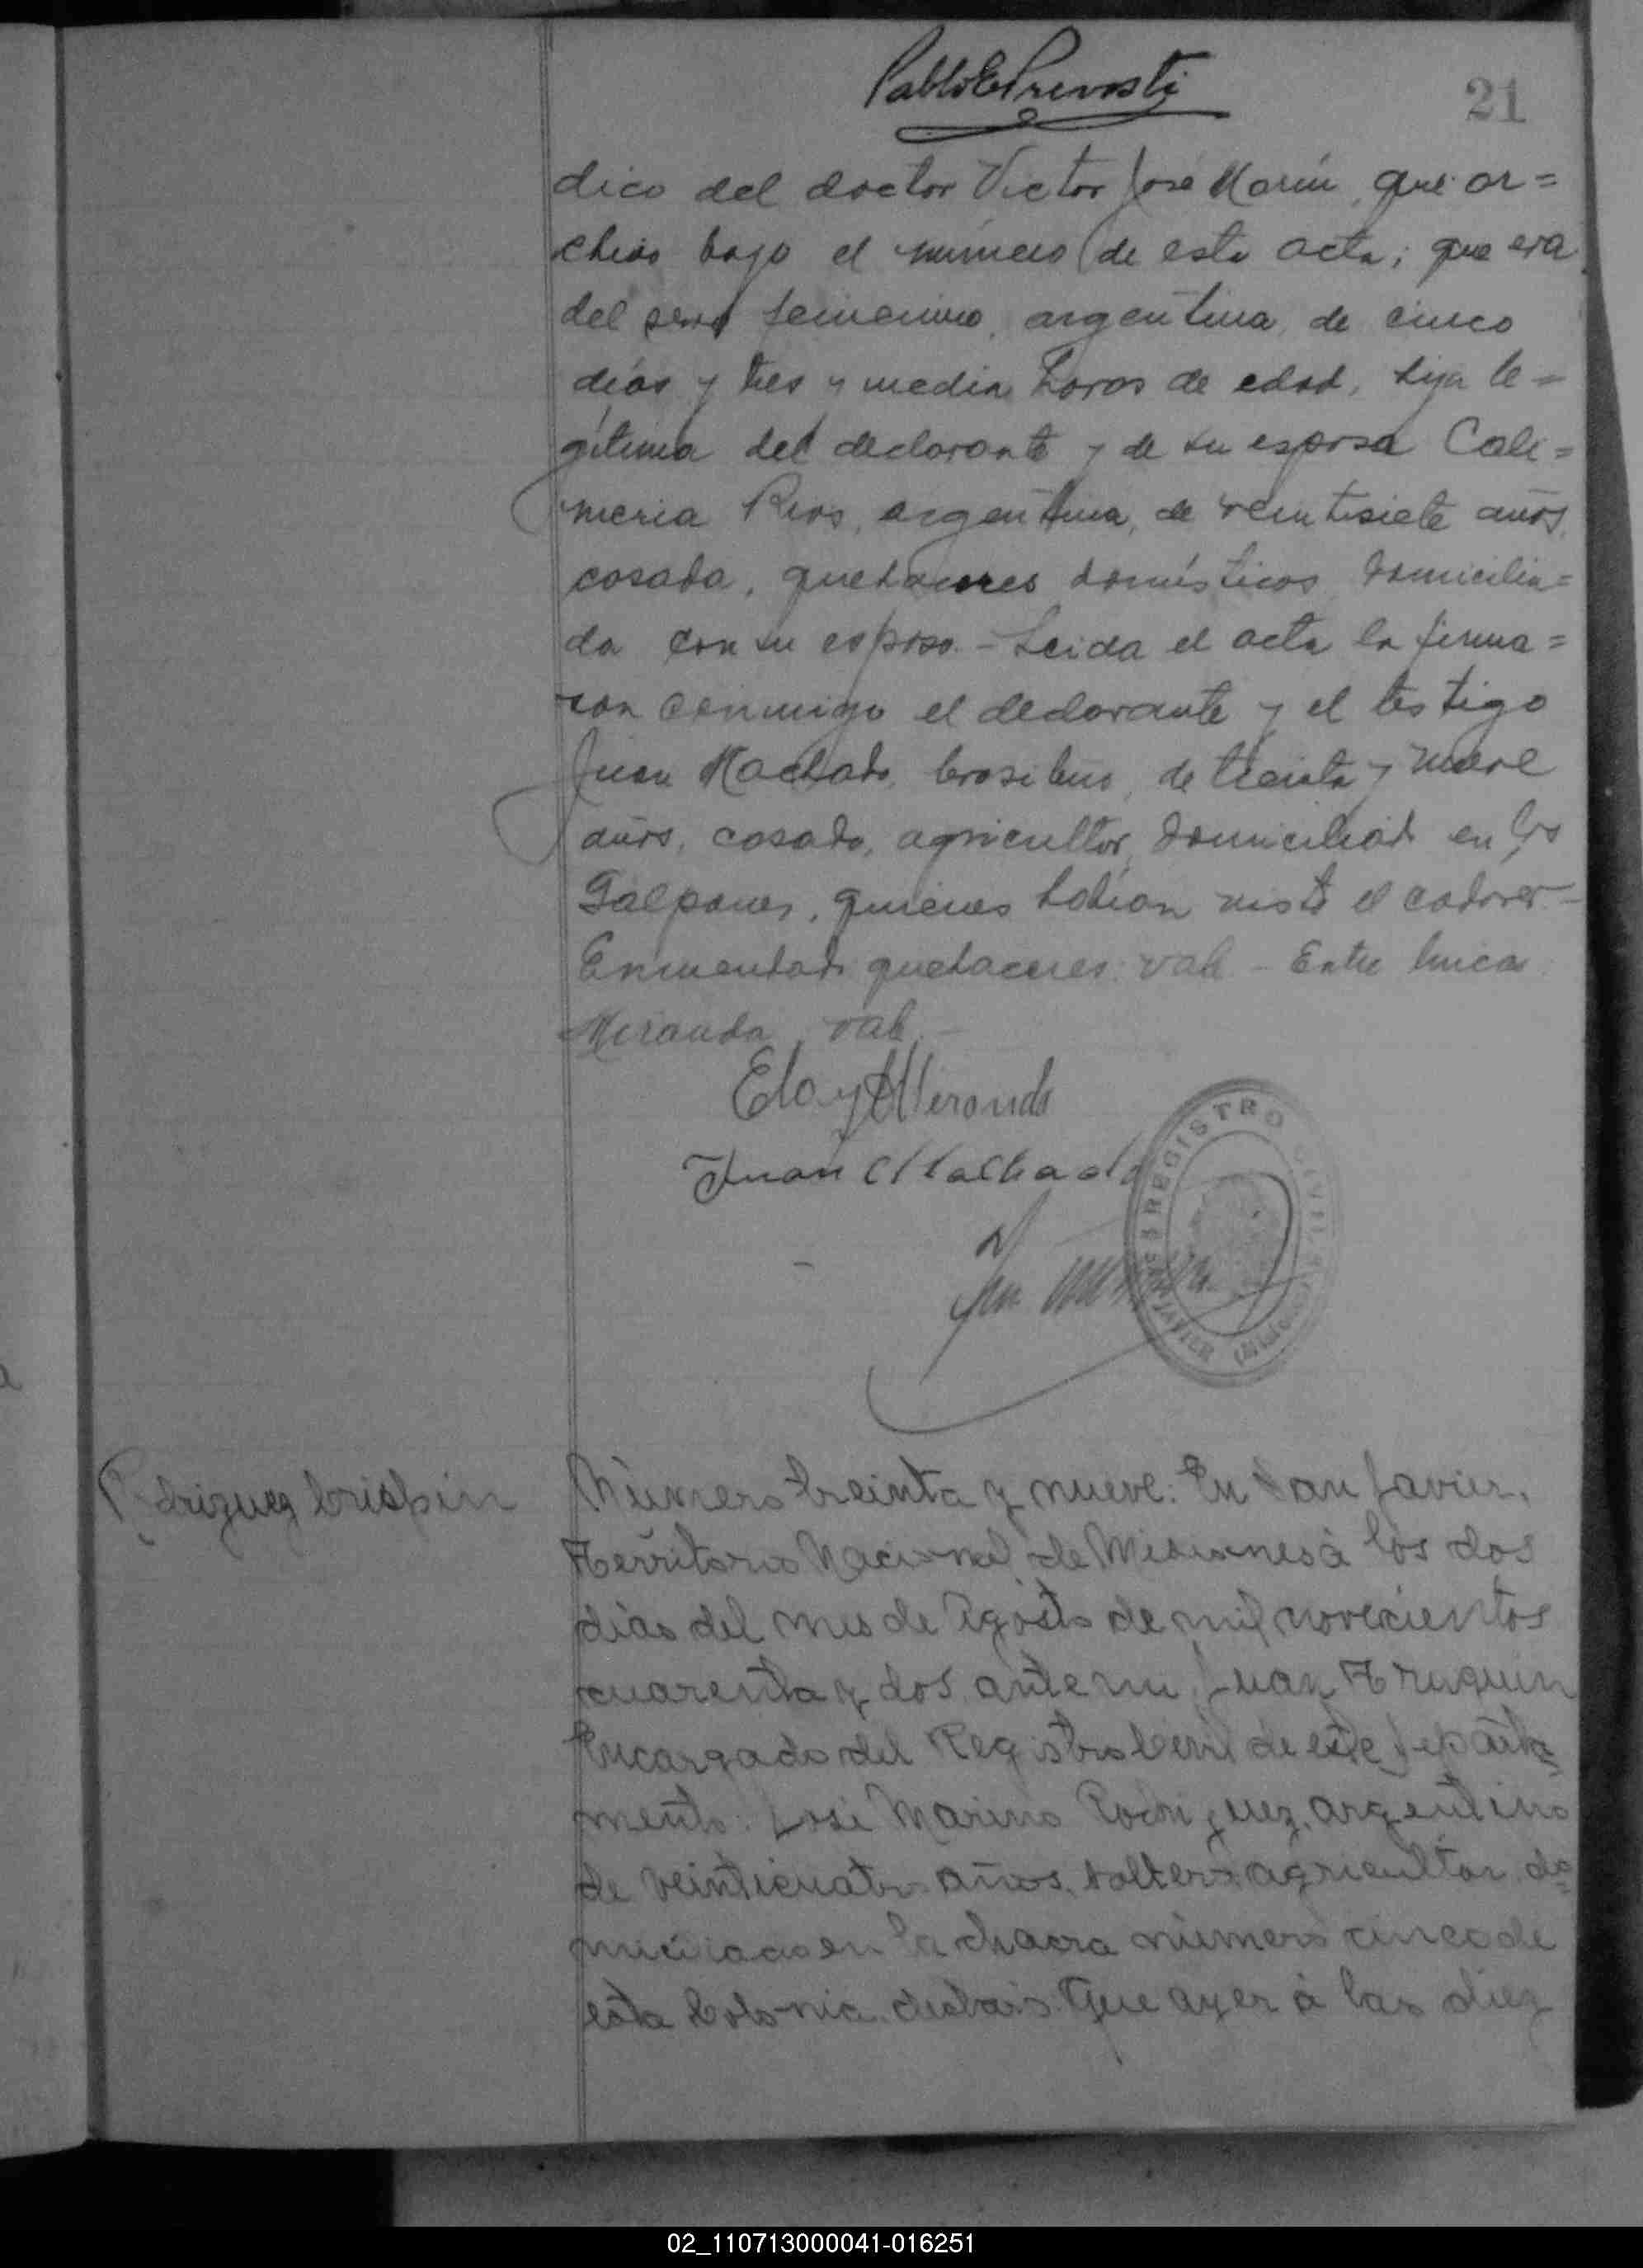 Pablo E Prevosti
21
dico del doctor Victor José Marín, que ar=
chivo bajo el número de esta acta; que era
del sexo femenino, argentina, de cinco
días y tres y media horas de edad, hija le=
gítima del declarante y de su esposa Cali=
meria Rios, argentina, de veintisiete años,
casada, quehaceres domésticos, domicilia=
da con su esposo.- Leida el acta la firma=
ron conmigo el declarante y el testigo
Juan Machado, brasileño, de treinta y nueve
años, casado, agricultor, domiciliado en los
Galpones, quienes habían visto el cadaver-
Enmendado quehaceres: vale - Entre linea
Miranda, vale.-
Eloy Miranda
Juan Machado
REGISTRO CIVIL
JAVIER (MISIONES)
Rodriguez Crispin
Número treinta y nueve: En San Javier,
Territorio Nacional de Misiones à los dos
dias del mes de Agosto de mil novecientos
cuarenta y dos, ante mi, Juan Truquin
Encargado del Registro Civil de este Departa=
mento: José Marino Rodriguez, argentino
de veinticuatro años, soltero agricultor, do=
miciliado en la chacra número cinco de
esta Colonia, declaró: Que ayer à las diez
02_110713000041-016251